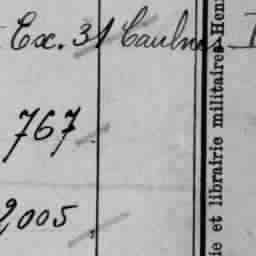 Ex. 31
767
2,005
ie et librairie militaires Hen